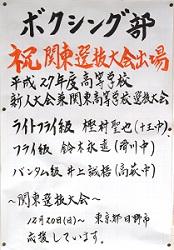 ボクシング部
祝 関東選抜大会出場
平成27年度高等学校
新人大会兼関東高等学校選抜大会
ライトフライ級 樫村聖也(十王中)
フライ級 鈴木永遠(滑川中)
バンタム級 井上誠梧(高萩中)
~関東選抜大会~
12月20日(日)~ 東京都日野市
応援しています。